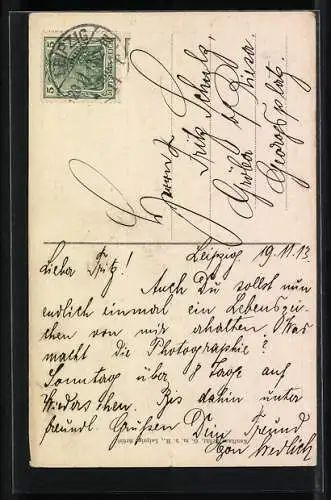 5
5
LEIPZIG
Herrn
Fritz Schulz,
Gröba b/ Riesa.
Georgsplatz.
Leipzig 19.11.13.
Lieber Fritz!
Auch Du sollst nun
endlich einmal ein Lebenszei-
chen von mir erhalten. Was
macht die Photographie?
Sonntag über 8 Tage auf
Wiedersehen. Bis dahin unter
freundl. Grüßen Dein Freund
G. m. b. H., Leipzig